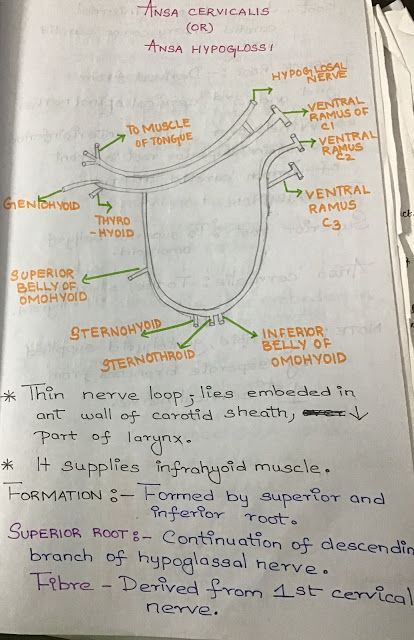 ANSA CERVICALIS
(OR)
ANSA HYPOGLOSSI
HYPOGLOSAL
NERVE
VENTRAL
RAMUS OF
C1
TO MUSCLE
OF TONGUE
VENTRAL
RAMUS
C2
GENIOHYOID
THYRO
-HYOID
VENTRAL
RAMUS
C3
SUPERIOR
BELLY OF
OMOHYOID
STERNOHYOID
STERNOTHROID
INFERIOR
BELLY OF
OMOHYOID
* Thin nerve loop, lies embeded in
ant wall of carotid sheath, ↓
part of larynx.
* It supplies infrahyoid muscle.
FORMATION :- Formed by superior and
inferior root.
SUPERIOR ROOT :- Continuation of descendin
branch of hypoglassal nerve.
Fibre - Derived from 1st cervical
nerve.